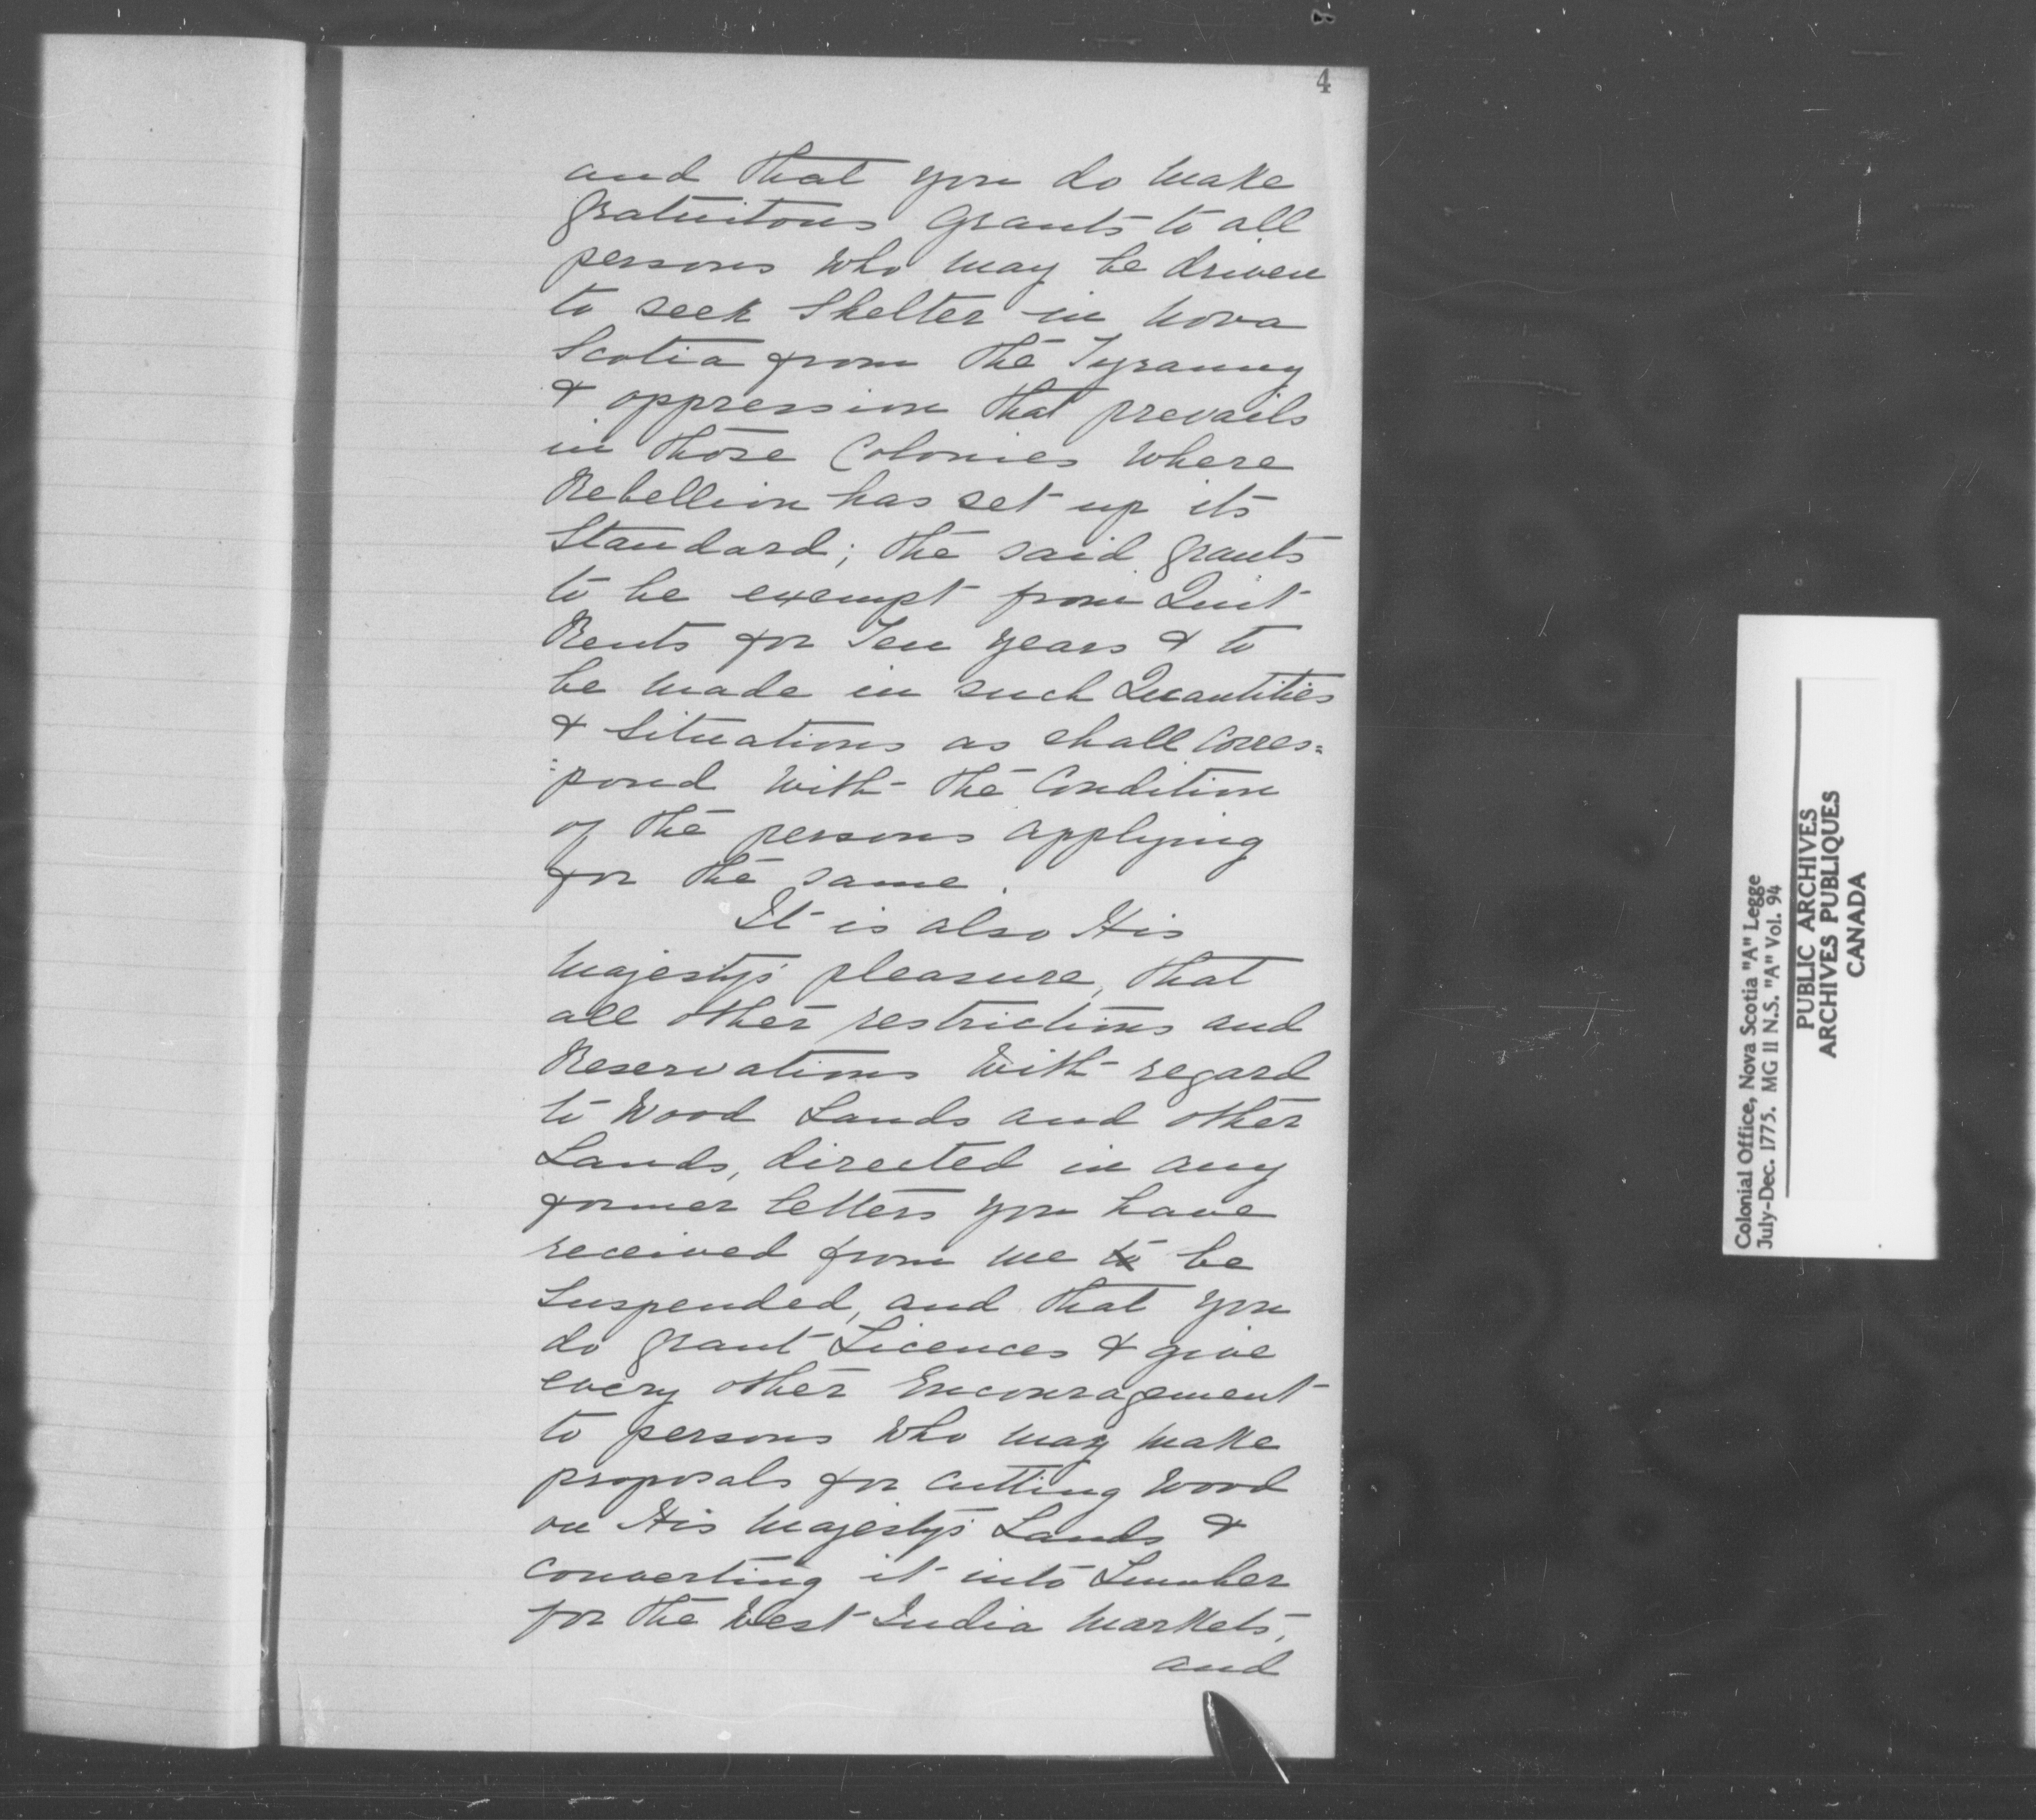 4
and that you do make
gratuitous grants to all
persons who may be driven
to seek Shelter in Nova
Scotia from the Tyranny
& oppression that prevails
in those Colonies where
Rebellion has set up its
Standard; the said grants
to be exempt from Quit
Rents for Ten years & to
be made in such Quantities
& Situations as shall Corres=
=pond with the Condition
of the persons applying
for the same.
It is also His
Majesty's pleasure, that
all other restrictions and
Reservations with regard
to Wood Lands and other
Lands, directed in any
former letters you have
received from me to be
Suspended, and that you
do grant Licences & give
every other Encouragement
to persons who may make
proposals for cutting Wood
on His Majesty's Lands &
converting it into Lumber
for the West India Markets,
and
Colonial Office, Nova Scotia "A" Legge
July-Dec. 1775. MG 11 N.S. "A" Vol. 94
PUBLIC ARCHIVES
ARCHIVES PUBLIQUES
CANADA